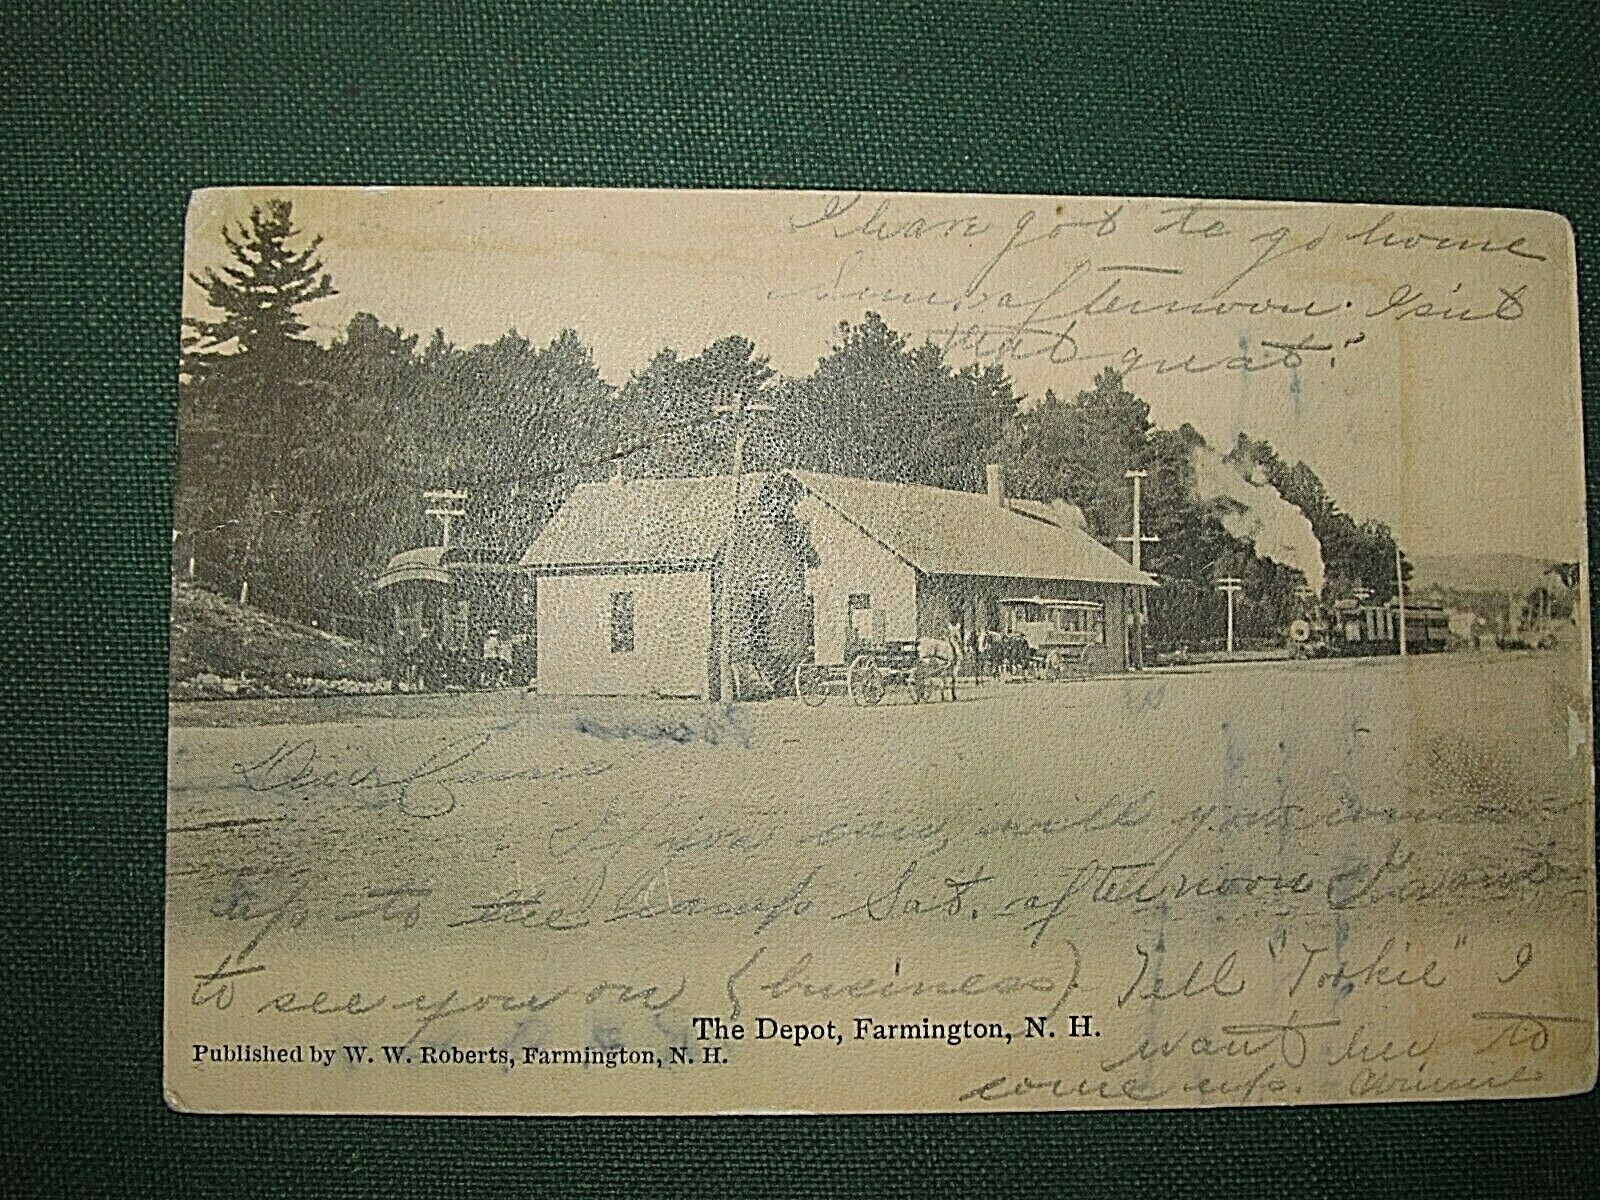 I have got to go home
afternoon. Isn't
that great.
Dear
If you can, will you come
up to the camp Sat. afternoon I want
to see you on (business) Tell "Tookie" I
The Depot, Farmington, N. H.
want her to
Published by W. W. Roberts, Farmington, N. H.
come up. Winnie